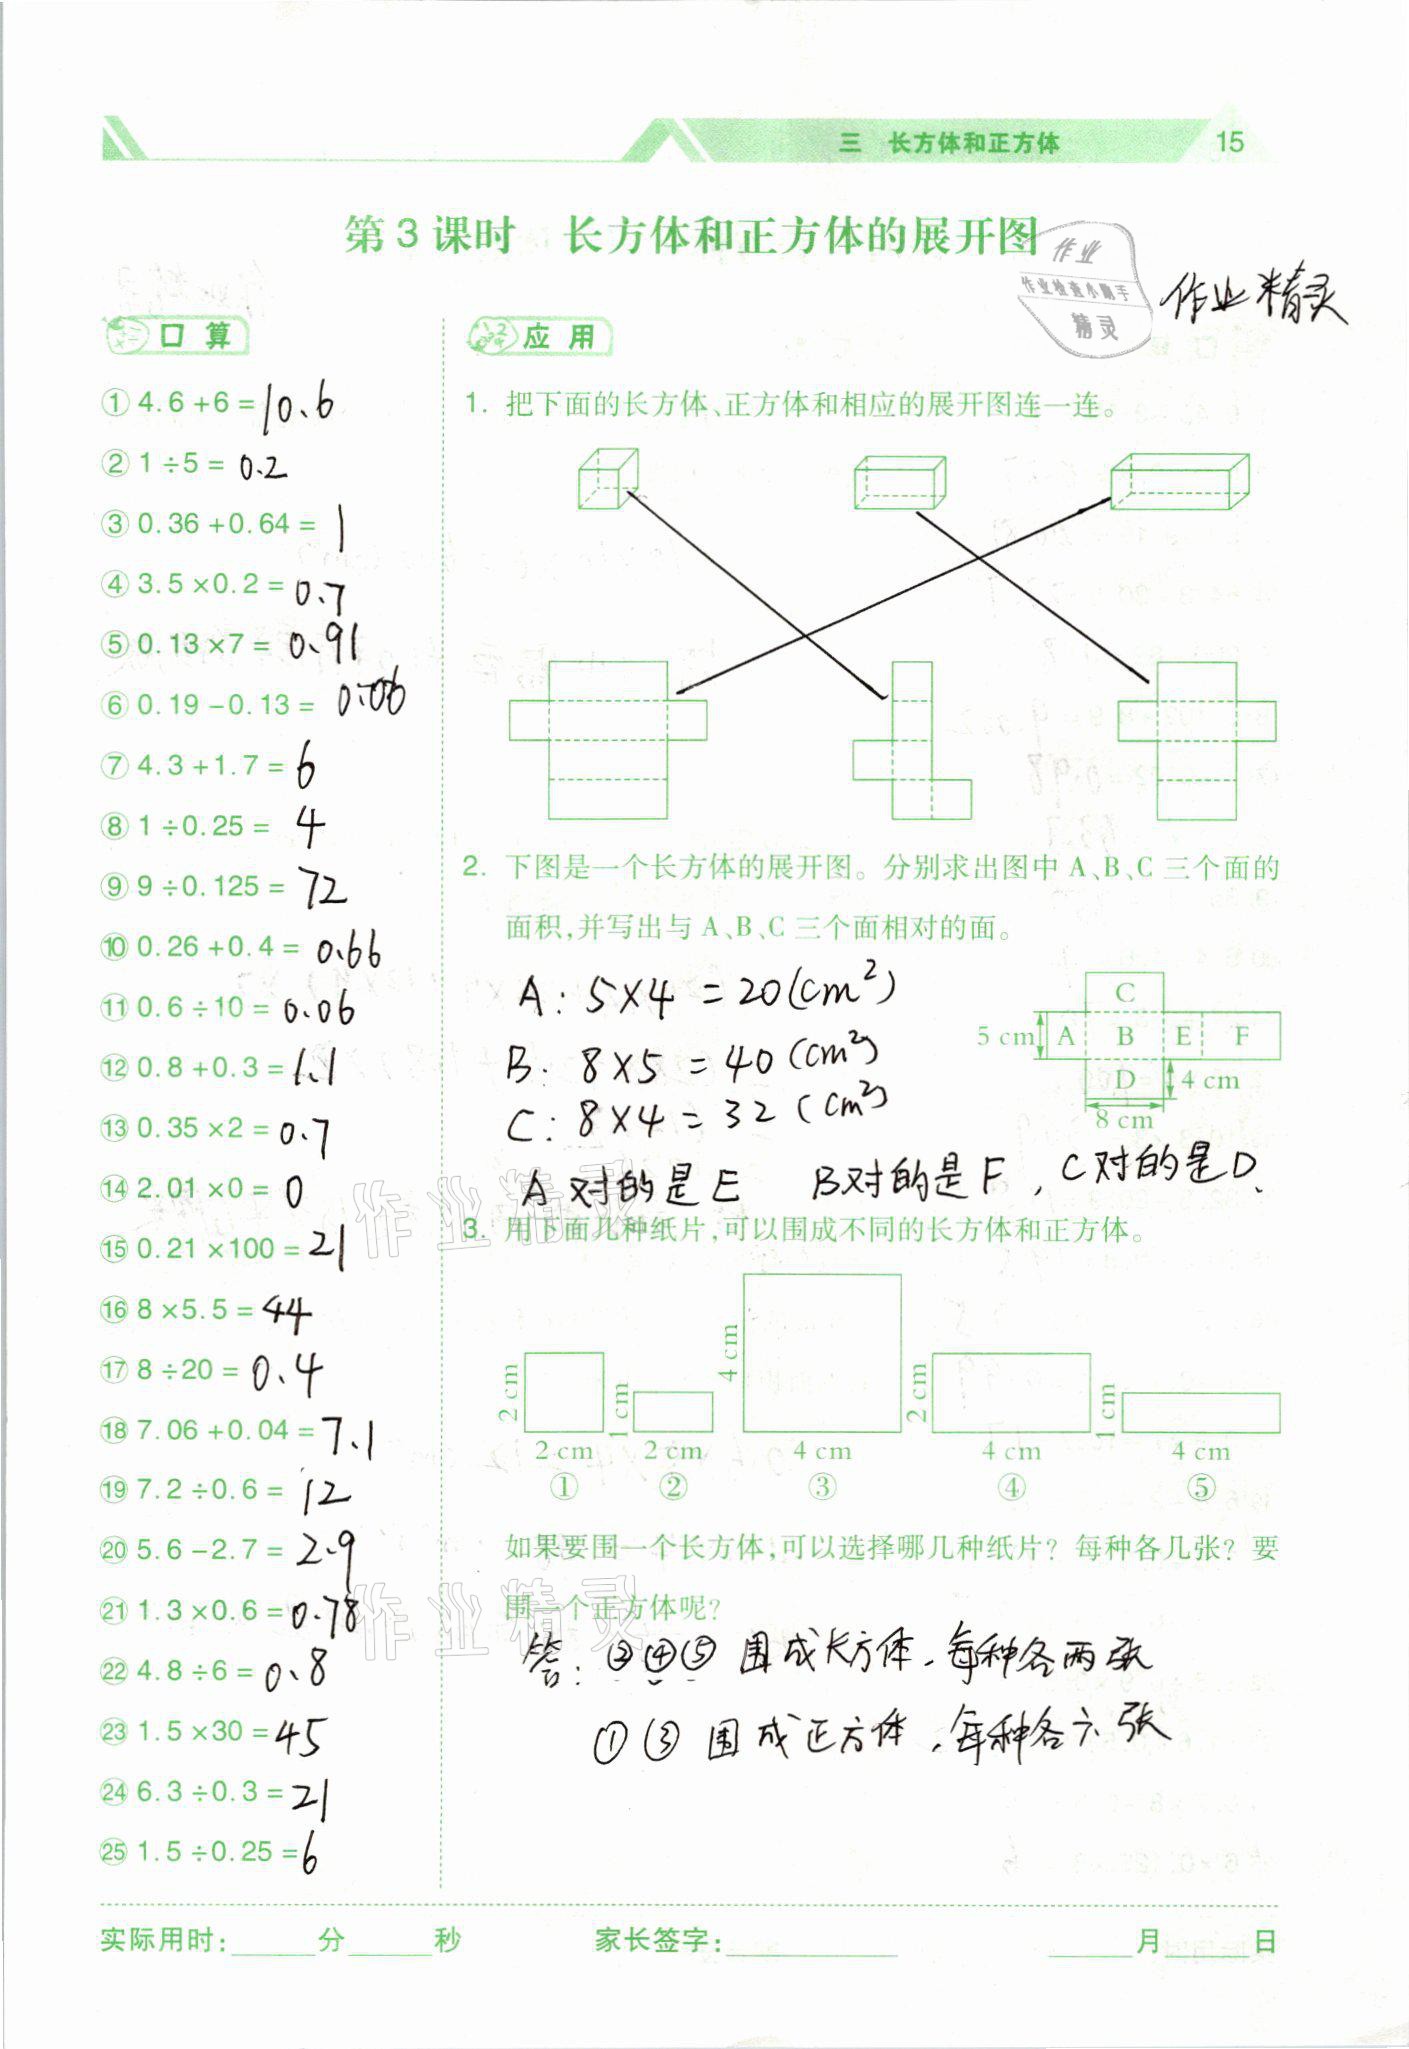 三 长方体和正方体 15
第3课时 长方体和正方体的展开图
作业
作业检查小助手
精灵
作业精灵
口算
① 4.6+6= 10.6
② 1÷5= 0.2
③ 0.36+0.64= 1
④ 3.5×0.2= 0.7
⑤ 0.13×7= 0.91
⑥ 0.19-0.13= 0.06
⑦ 4.3+1.7= 6
⑧ 1÷0.25= 4
⑨ 9÷0.125= 72
⑩ 0.26+0.4= 0.66
⑪ 0.6÷10= 0.06
⑫ 0.8+0.3= 1.1
⑬ 0.35×2= 0.7
⑭ 2.01×0= 0
⑮ 0.21×100= 21
⑯ 8×5.5= 44
⑰ 8÷20= 0.4
⑱ 7.06+0.04= 7.1
⑲ 7.2÷0.6= 12
⑳ 5.6-2.7= 2.9
㉑ 1.3×0.6= 0.78
㉒ 4.8÷6= 0.8
㉓ 1.5×30= 45
㉔ 6.3÷0.3= 21
㉕ 1.5÷0.25= 6
应用
1. 把下面的长方体、正方体和相应的展开图连一连。
2. 下图是一个长方体的展开图。分别求出图中 A、B、C 三个面的
面积,并写出与 A、B、C 三个面相对的面。
A: 5×4=20(cm²)
B: 8×5=40(cm²)
C: 8×4=32(cm²)
C
5 cm A B E F
D 4 cm
8 cm
A对的是E B对的是F, C对的是D.
作业精灵
3. 用下面几种纸片,可以围成不同的长方体和正方体。
2 cm 1 cm 4 cm 2 cm 1 cm
2 cm 2 cm 4 cm 4 cm 4 cm
① ② ③ ④ ⑤
如果要围一个长方体,可以选择哪几种纸片? 每种各几张? 要
围一个正方体呢?
作业精灵
答: ②④⑤围成长方体,每种各两张
①③围成正方体,每种各六张
实际用时:______分______秒 家长签字:____________ ______月______日